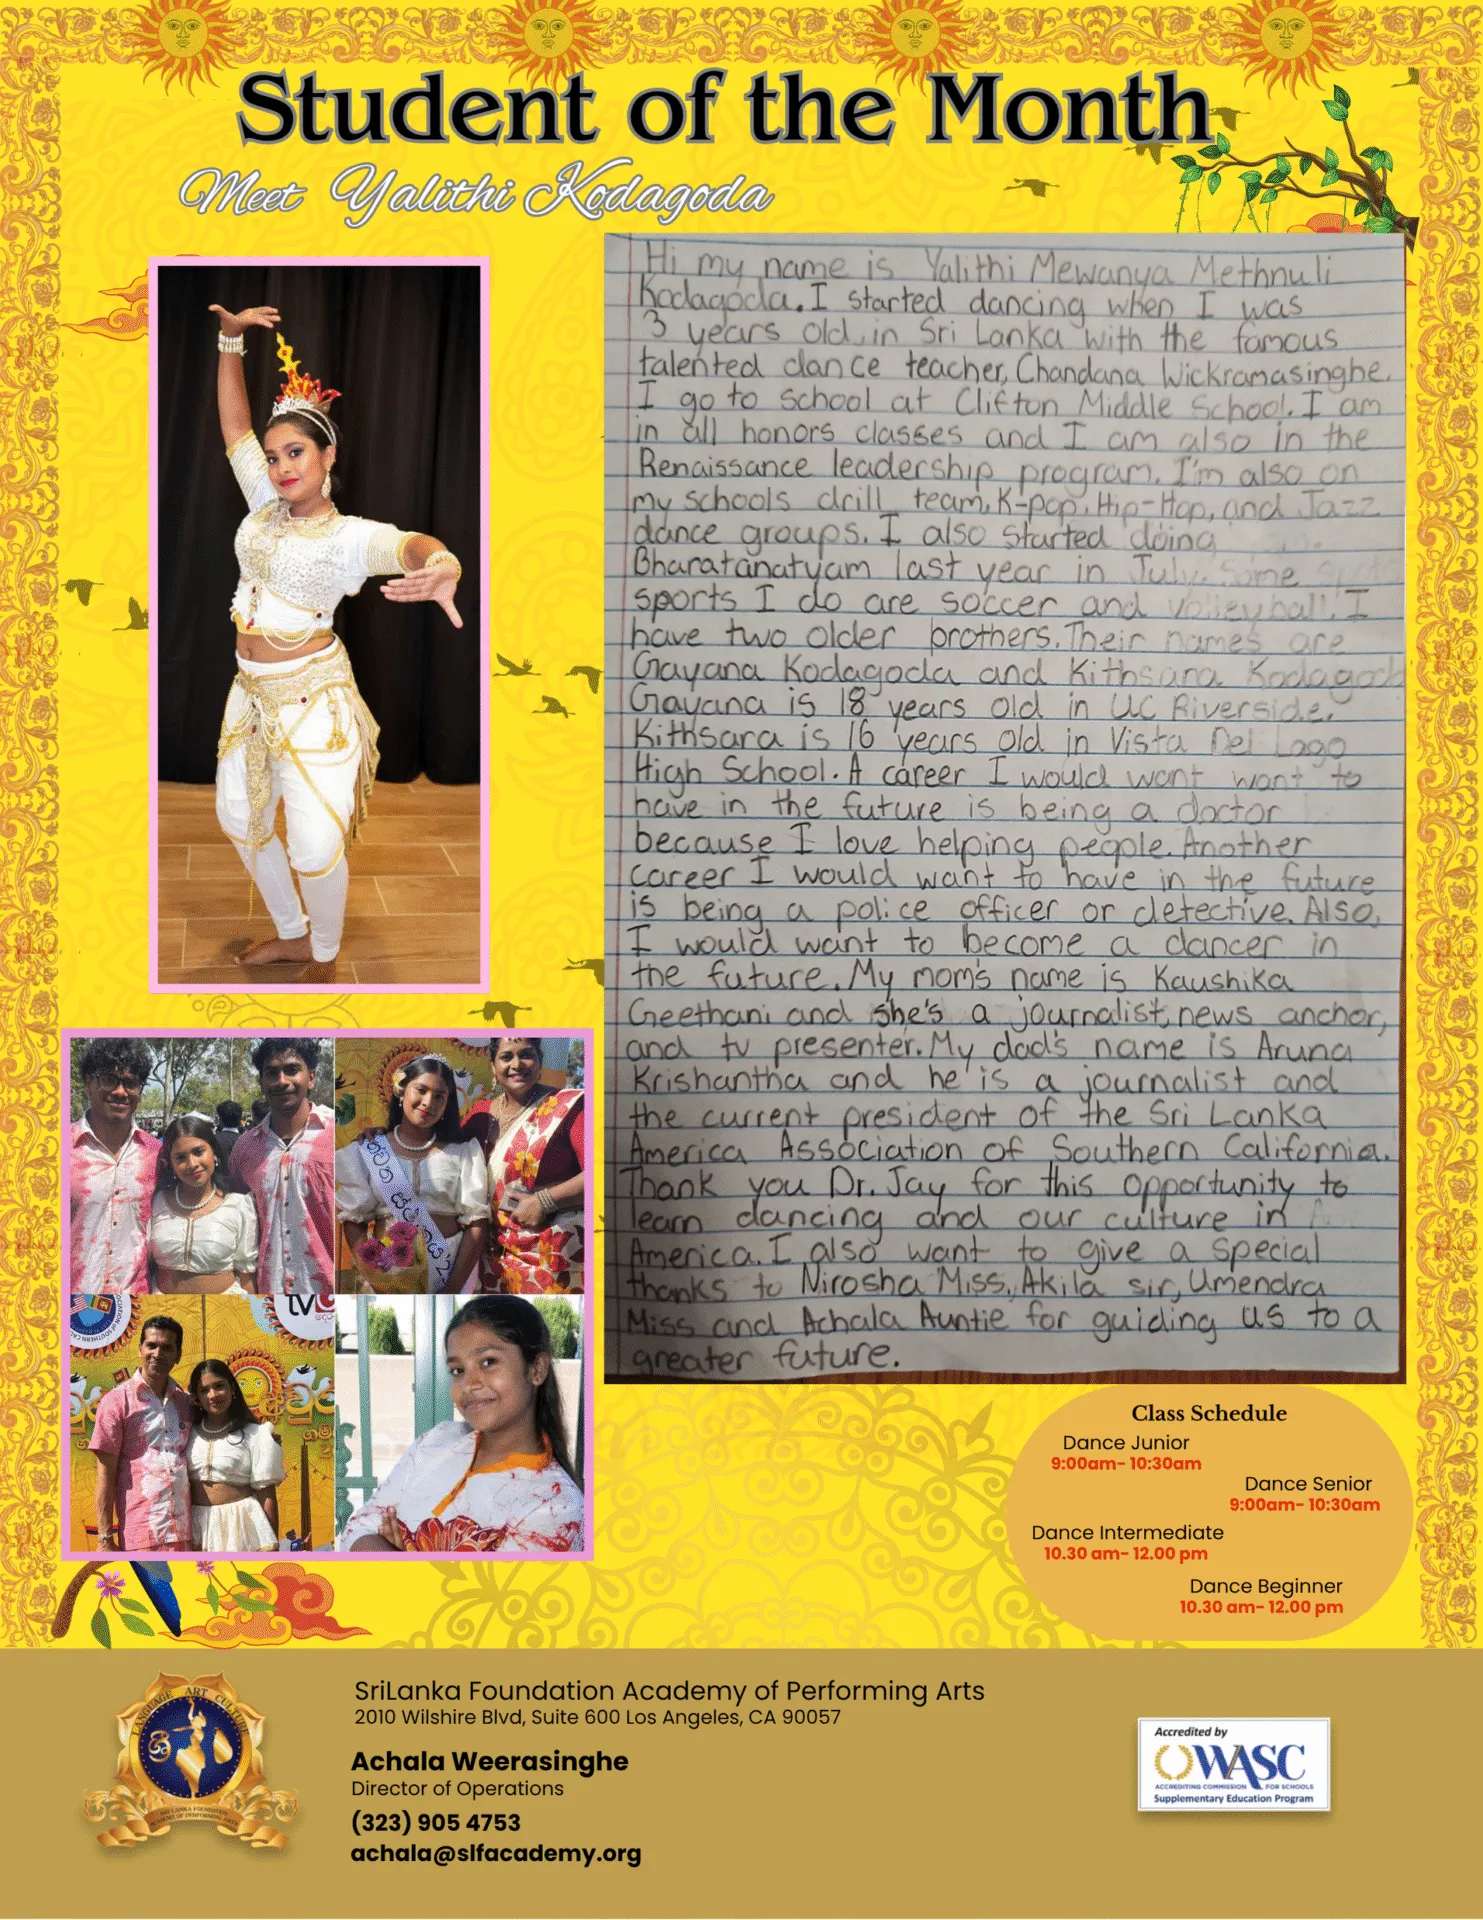 Student of the Month
Meet Yalithi Kodagoda
Hi my name is Yalithi Mewanya Methnuli
Kodagoda. I started dancing when I was
3 years old, in Sri Lanka with the famous
talented dance teacher, Chandana Wickramasinghe.
I go to school at Clifton Middle School. I am
in all honors classes and I am also in the
Renaissance leadership program. I'm also on
my schools drill team, K-pop, Hip-Hop, and Jazz
dance groups. I also started doing
Bharatanatyam last year in July. Some
sports I do are soccer and volleyball. I
have two older brothers. Their names are
Gayana Kodagoda and Kithsara Kodagod
Gayana is 18 years old in UC Riverside.
Kithsara is 16 years old in Vista Del Lago
High School. A career I would want want to
have in the future is being a doctor
because I love helping people. Another
career I would want to have in the future
is being a police officer or detective. Also,
I would want to become a dancer in
the future. My mom's name is Kaushika
Geethani and she's a journalist, news anchor,
and tv presenter. My dad's name is Aruna
Krishantha and he is a journalist and
the current president of the Sri Lanka
America Association of Southern California.
Thank you Dr. Jay for this opportunity to
learn dancing and our culture in
America. I also want to give a special
thanks to Nirosha Miss, Akila sir, Umendra
Miss and Achala Auntie for guiding us to a
greater future.
Class Schedule
Dance Junior
9:00am- 10:30am
Dance Senior
9:00am- 10:30am
Dance Intermediate
10.30 am- 12.00 pm
Dance Beginner
10.30 am- 12.00 pm
LANGUAGE ART CULTURE
SRI LANKA FOUNDATION
ACADEMY OF PERFORMING ARTS
SriLanka Foundation Academy of Performing Arts
2010 Wilshire Blvd, Suite 600 Los Angeles, CA 90057
Achala Weerasinghe
Director of Operations
(323) 905 4753
achala@slfacademy.org
Accredited by
WASC
ACCREDITING COMMISSION FOR SCHOOLS
Supplementary Education Program